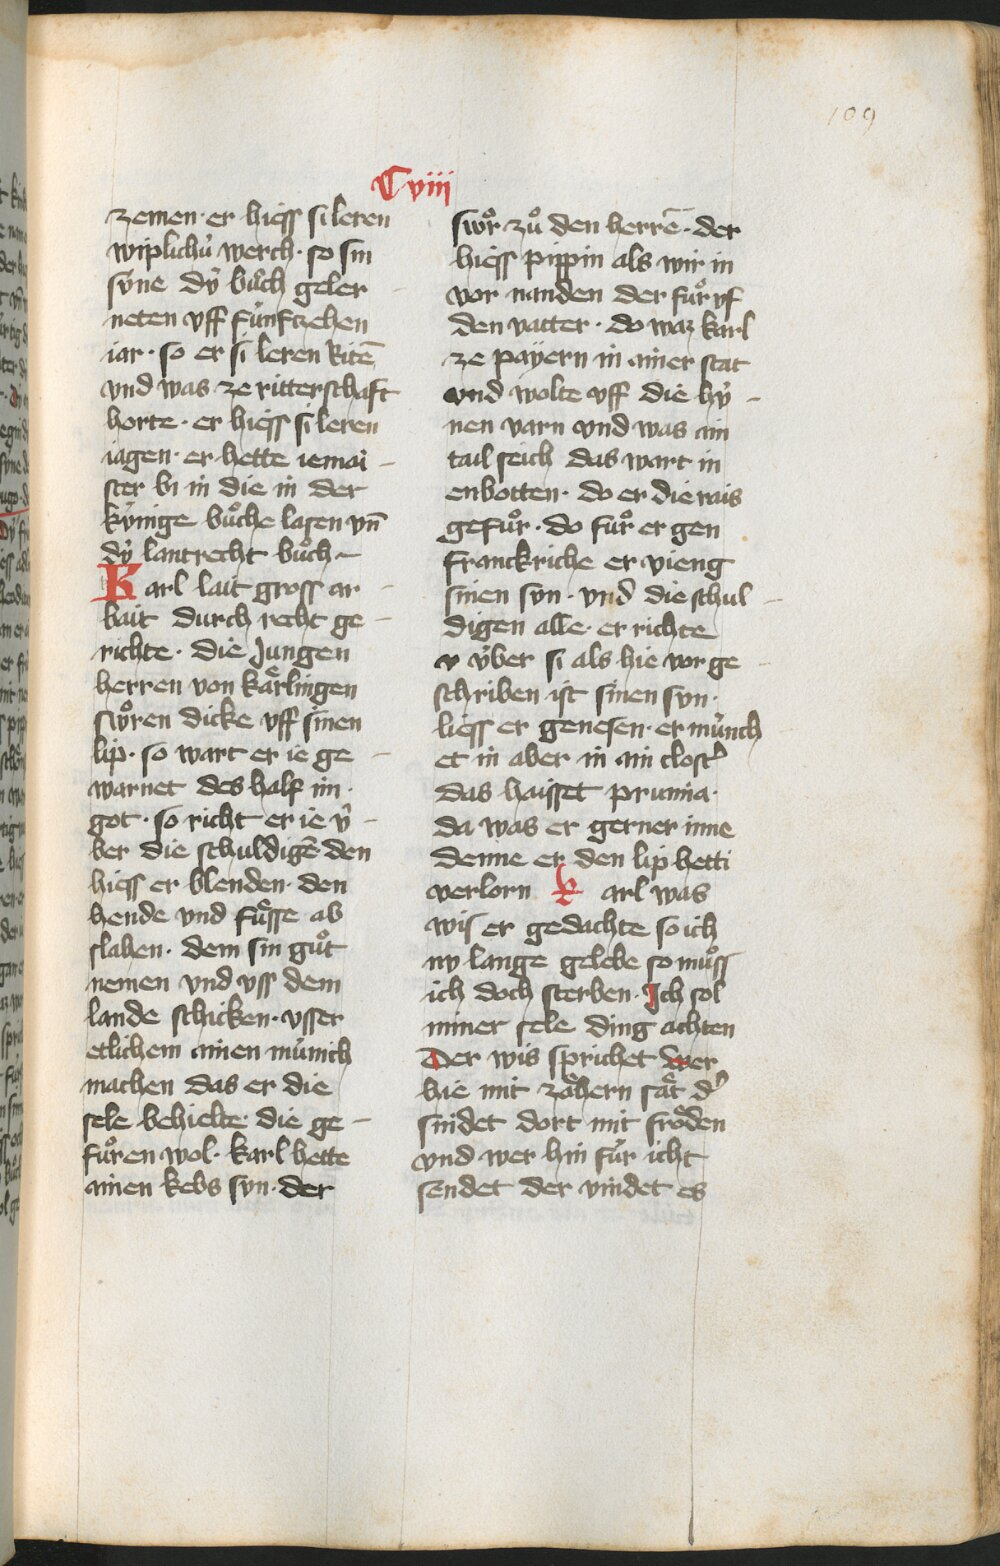 109
Cviii
zemen · er hiess si leren
wiplichú werch · so sin
sv́ne dv́ bůch geler -
neten vff fúnftzehen
iar · so er si leren Ritē
vnd was ze ritterschaft
horte · er hiess si leren
iagen · er hette iemai -
ster bi in die in der
kv́nige bůche lasen vn̄
dv́ lantrecht bůch -
Karl lait gross ar -
bait durch recht ge -
richte · die Jungen
herren von kaͤrlingen
swůren dicke vff sinen
lip · so wart er ie ge -
warnet des half im ·
got · so richt er ie v́ -
ber die schuldigē den
hiess er blenden · den
hende vnd fuͤsse ab
slahen · dem sin gůt
nemen vnd vss dem
lande schicken · vsser
etlichem ainen múnich
machen das er die
sele behielte · die ge -
fůren wol · karl hette
ainen kebs svn · der
swůr zů den herrē · der
hiess pippin als wir in
vor nanden der fůr vf
den vatter · do waz karl
ze payern in ainer stat
vnd wolte vff die hv́ -
nen varn vnd was ain
tail seich das wart in
enbotten · do er die rais
gefůr · do fůr er gen
franckriche er vieng
sinen svn · vnd die schul -
digen alle · er richte
v v́ber si als hie vor ge -
schriben ist sinen svn ·
liess er genesen · er múnch
et in aber in ain closť
das haisset prumia ·
da was er gerner inne
denne er den lip hetti
verlorn karl was
wis er gedachte so ich
nv lange gelebe so můss
ich doch sterben · Ich sol
miner sele ding achten
Der wis sprichet wer
hie mit zaͤhern saͤt d'
sindet dort mit froͤden
vnd wer hin fúr icht
sendet der vindet es